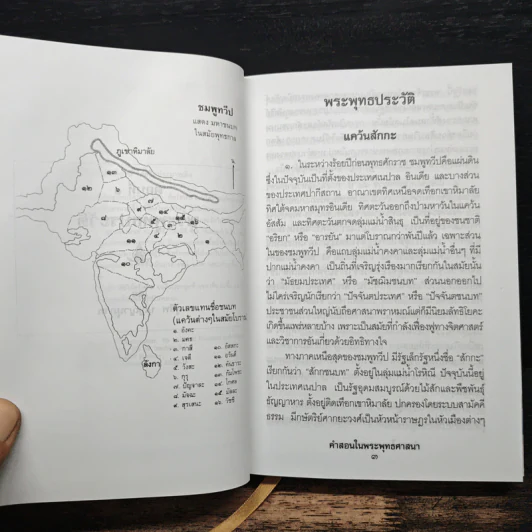 ชมพูทวีป
แสดง มหาชนบท
ในสมัยพุทธกาล
ภูเขาหิมาลัย
ลังกา
ตัวเลขแทนชื่อชนบท
(แคว้นต่างๆในสมัยโบราณ)
๑. อังคะ
๒. มคธ
๓. กาสี
๔. เจตี
๕. วังสะ
๖. กุรุ
๗. ปัญจาละ
๘. มัจฉะ
๙. สุรเสนะ
๑๐. อัสสกะ
๑๑. อวันตี
๑๒. คันธาระ
๑๓. กัมโพชะ
๑๔. โกศล
๑๕. มัลละ
๑๖. วัชชี
พระพุทธประวัติ
แคว้นสักกะ
๑. ในระหว่างร้อยปีก่อนพุทธศักราช ชมพูทวีปคือแผ่นดิน
ซึ่งในปัจจุบันเป็นที่ตั้งของประเทศเนปาล อินเดีย และบางส่วน
ของประเทศปากีสถาน อาณาเขตทิศเหนือจดเทือกเขาหิมาลัย
ทิศใต้จดมหาสมุทรอินเดีย ทิศตะวันออกถึงป่ามหาวันในแคว้น
อัสสัม และทิศตะวันตกจดลุ่มแม่น้ำสินธุ เป็นที่อยู่ของชนชาติ
"อริยก" หรือ "อารยัน" มาแต่โบราณกว่าพันปีแล้ว เฉพาะส่วน
ในของชมพูทวีป คือแถบลุ่มแม่น้ำคงคาและลุ่มแม่น้ำอื่นๆ ที่มี
ปากแม่น้ำคงคา เป็นถิ่นที่เจริญรุ่งเรืองมากเรียกกันในสมัยนั้น
ว่า "มัธยมประเทศ" หรือ "มัชฌิมชนบท" ส่วนนอกออกไป
ไม่ใคร่เจริญนักเรียกว่า "ปัจจันตประเทศ" หรือ "ปัจจันตชนบท"
ประชาชนส่วนใหญ่นับถือศาสนาพราหมณ์แต่ก็มีนิยมลัทธิโยคะ
เกิดขึ้นแพร่หลายบ้าง เพราะเป็นสมัยที่กำลังเฟื่องฟูทางจิตศาสตร์
และวิชาการอันเกี่ยวด้วยอิทธิทางใจ
ทางภาคเหนือสุดของชมพูทวีป มีรัฐเล็กรัฐหนึ่งชื่อ "สักกะ"
เรียกกันว่า "สักกชนบท" ตั้งอยู่ในลุ่มแม่น้ำโรหิณี ปัจจุบันนี้อยู่
ในประเทศเนปาล เป็นรัฐอุดมสมบูรณ์ด้วยไม้สักและพืชพันธุ์
ธัญญาหาร ตั้งอยู่ติดเทือกเขาหิมาลัย ปกครองโดยระบบสามัคคี
ธรรม มีกษัตริย์ศากยะวงศ์เป็นหัวหน้าราษฎรในหัวเมืองต่างๆ
คำสอนในพระพุทธศาสนา
๓